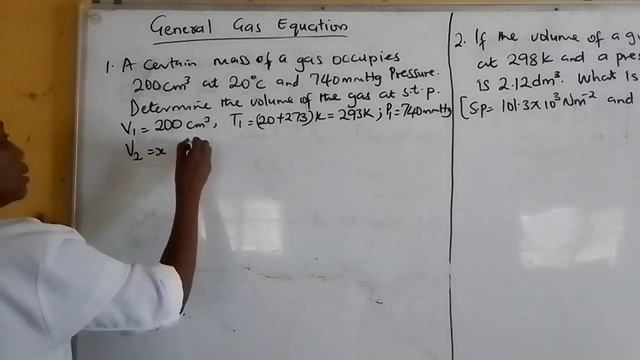 General Gas Equation
1. A certain mass of a gas occupies
200cm³ at 20°c and 740mmHg pressure.
Determine the volume of the gas at s.t.p.
V₁ = 200cm³, T₁ = (20+273)k = 293k; P₁=740mmHg
V₂ = x
2. If the volume of a
at 298k and a
is 2.12dm³. What is
[s.p = 101.3x10³Nm⁻² and